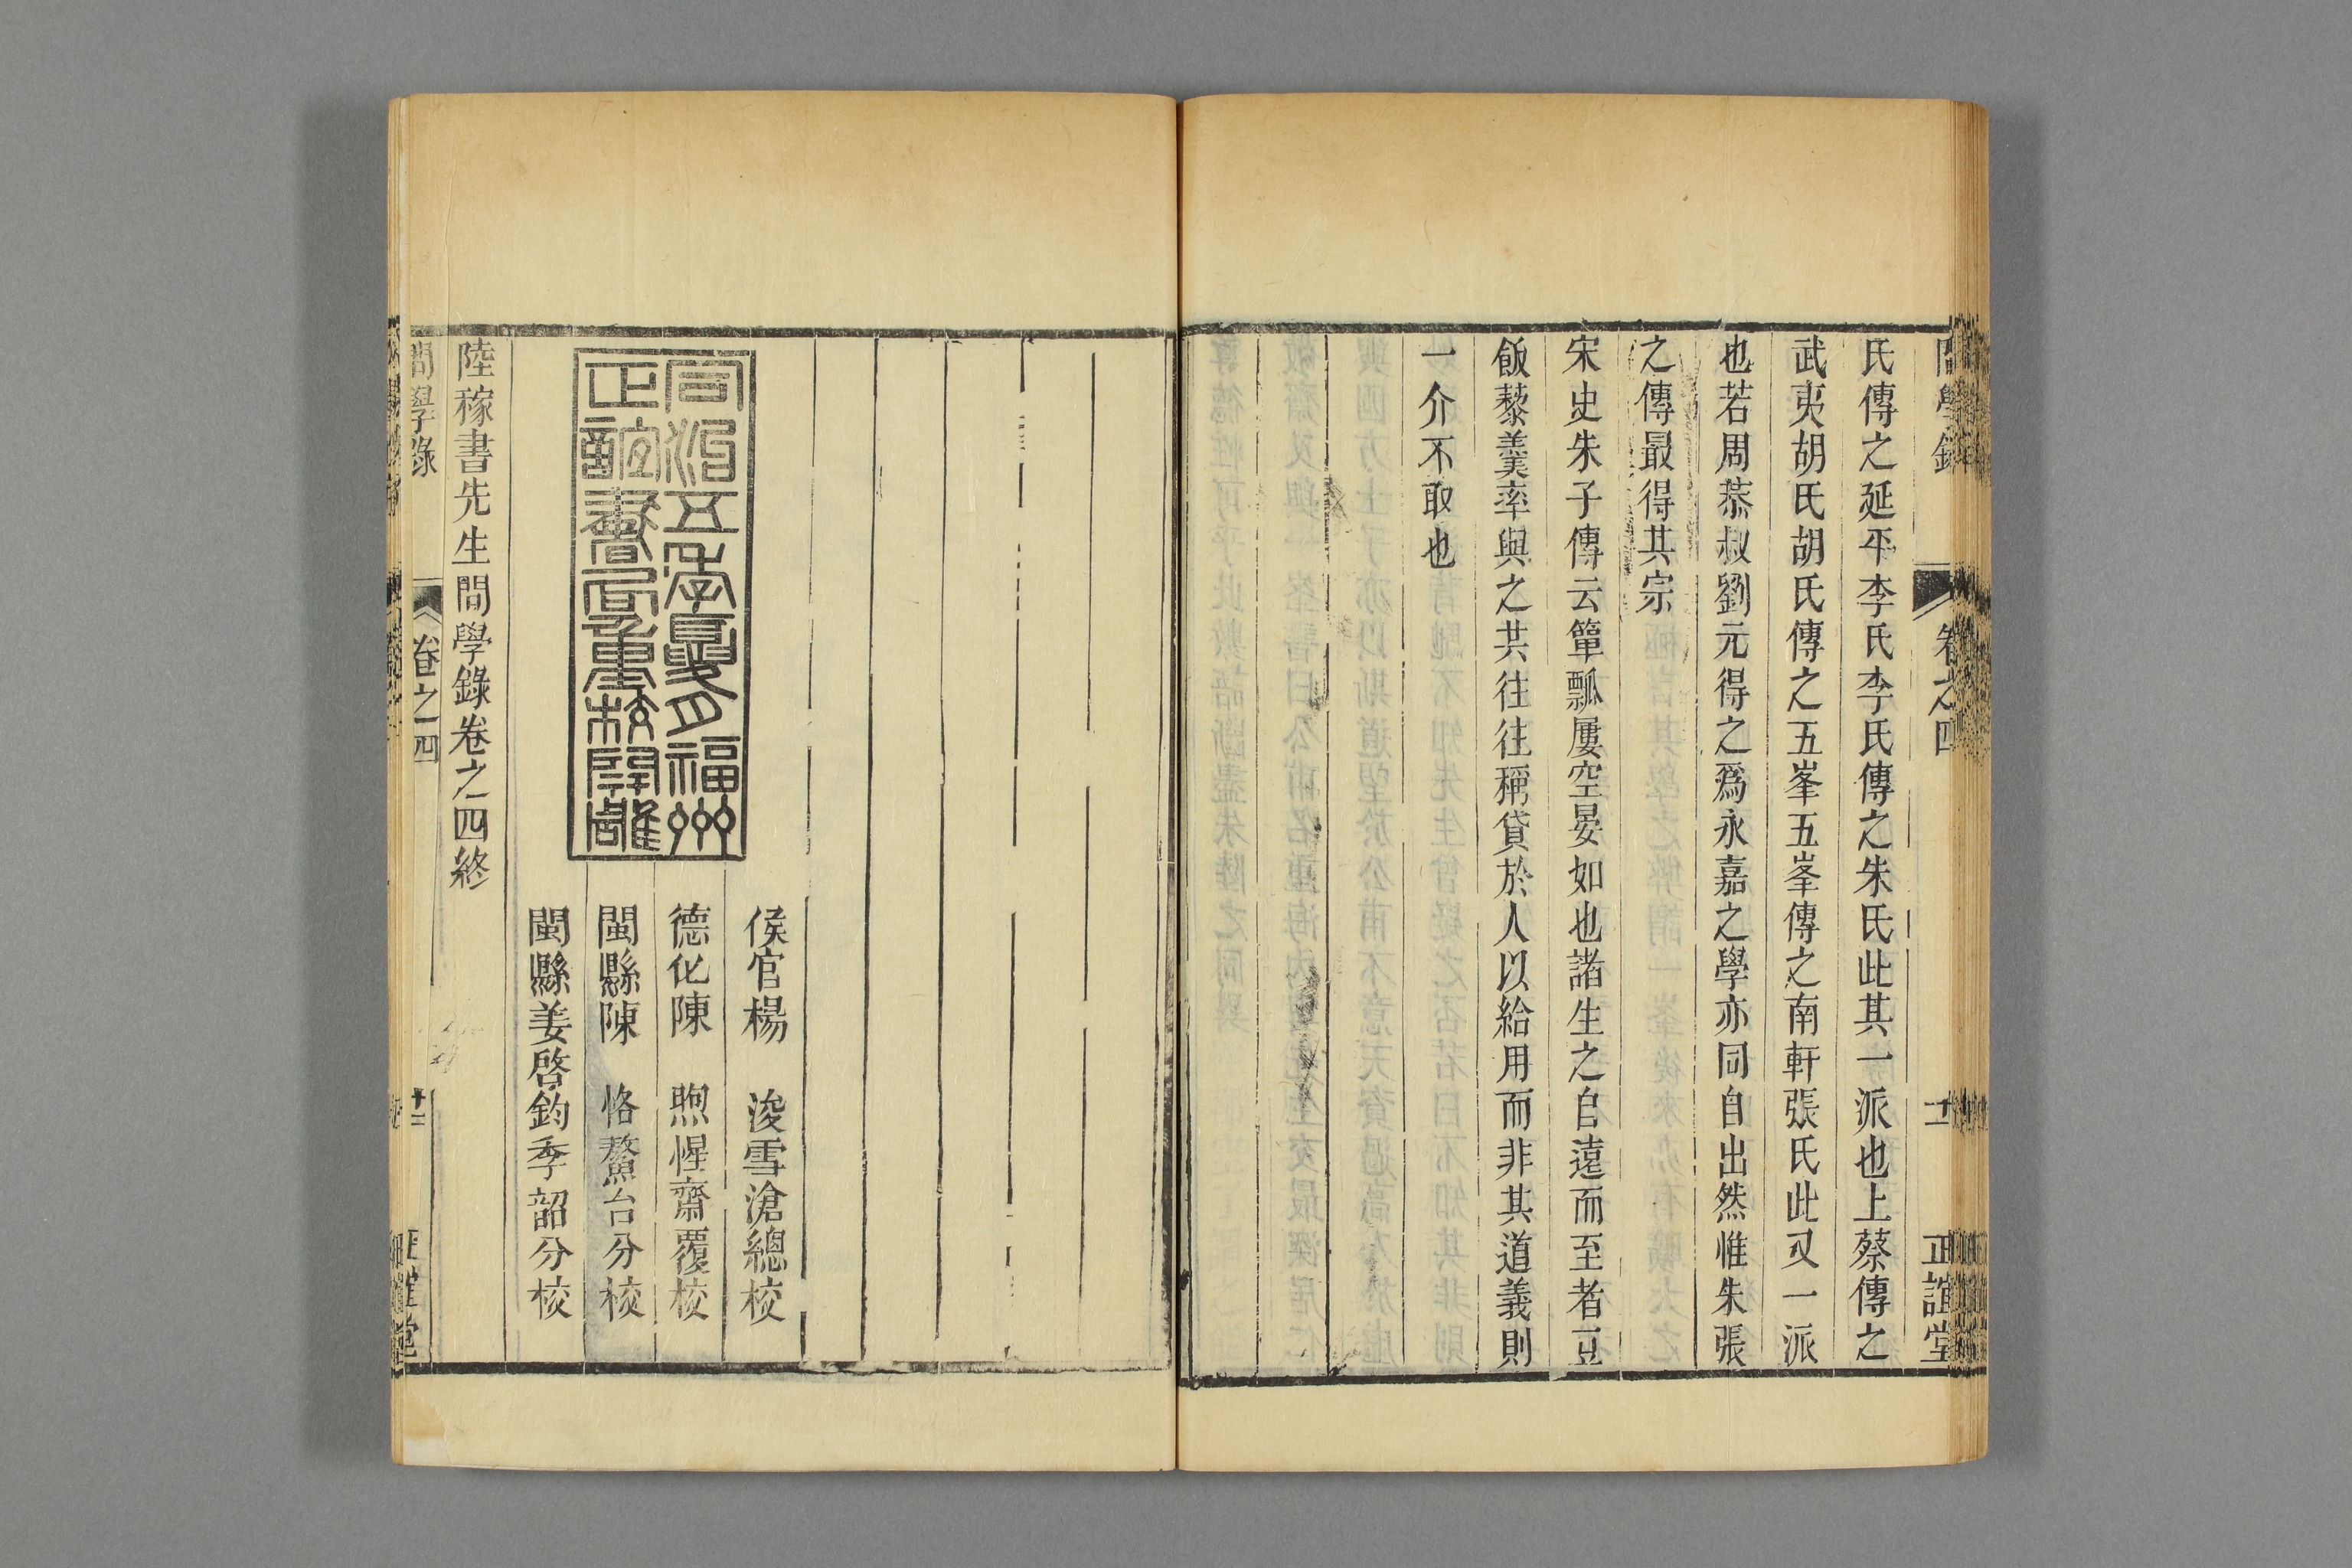 問學錄 卷之四 十一 正誼堂
氏傳之延平李氏李氏傳之朱氏此其一派也上蔡傳之
武夷胡氏胡氏傳之五峯五峯傳之南軒張氏此又一派
也若周恭叔劉元得之爲永嘉之學亦同自出然惟朱張
之傳最得其宗
宋史朱子傳云簞瓢屢空晏如也諸生之自遠而至者豆
飯藜羹率與之共往往稱貸於人以給用而非其道義則
一介不取也
同治五年夏月福州
正誼書局重校開雕
侯官楊 浚雪滄總校
德化陳 煦惺齋覆校
閩縣陳 恪鰲台分校
閩縣姜啓鈞季韶分校
陸稼書先生問學錄卷之四終
問學錄 卷之四 十二 正誼堂